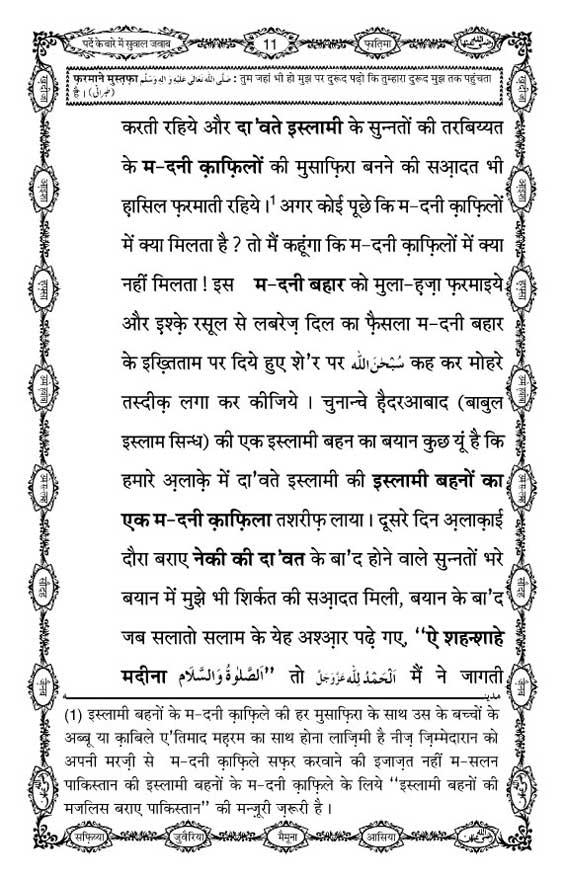 पर्दे के बारे में सुवाल जवाब
11
फ़ातिमा
फ़रमाने मुस्तफ़ा صَلَّى اللهُ تَعَالٰى عَلَيْهِ وَ اٰلِهٖ وَسَلَّم : तुम जहां भी हो मुझ पर दुरूद पढ़ो कि तुम्हारा दुरूद मुझ तक पहुंचता
है । (طبرانی)
करती रहिये और दा'वते इस्लामी के सुन्नतों की तरबिय्यत
के म-दनी क़ाफ़िलों की मुसाफ़िरा बनने की सआ़दत भी
ह़ासिल फ़रमाती रहिये ।¹ अगर कोई पूछे कि म-दनी क़ाफ़िलों
में क्या मिलता है ? तो मैं कहूंगा कि म-दनी क़ाफ़िलों में क्या
नहीं मिलता ! इस म-दनी बहार को मुला-ह़ज़ा फ़रमाइये
और इश्क़े रसूल से लबरेज़ दिल का फ़ैसला म-दनी बहार
के इख़्तिताम पर दिये हुए शे'र पर سُبْحٰنَ اللّٰه कह कर मोहरे
तस्दीक़ लगा कर कीजिये । चुनान्चे ह़ैदरआबाद (बाबुल
इस्लाम सिन्ध) की एक इस्लामी बहन का बयान कुछ यूं है कि
हमारे अ़लाक़े में दा'वते इस्लामी की इस्लामी बहनों का
एक म-दनी क़ाफ़िला तशरीफ़ लाया । दूसरे दिन अ़लाक़ाई
दौरा बराए नेकी की दा'वत के बा'द होने वाले सुन्नतों भरे
बयान में मुझे भी शिर्कत की सआ़दत मिली, बयान के बा'द
जब सलातो सलाम के येह अश्आ़र पढ़े गए, "ऐ शहन्शाहे
मदीना اَلصَّلٰوةُ وَالسَّلَام" तो اَلْحَمْدُ لِلّٰه عَزَّوَجَلَّ मैं ने जागती
مدينه
(1) इस्लामी बहनों के म-दनी क़ाफ़िले की हर मुसाफ़िरा के साथ उस के बच्चों के
अब्बू या क़ाबिले ए'तिमाद महरम का साथ होना लाज़िमी है नीज़ ज़िम्मेदारान को
अपनी मरज़ी से म-दनी क़ाफ़िले सफ़र करवाने की इजाज़त नहीं म-सलन
पाकिस्तान की इस्लामी बहनों के म-दनी क़ाफ़िले के लिये "इस्लामी बहनों की
मजलिस बराए पाकिस्तान" की मन्ज़ूरी ज़रूरी है ।
सफ़िय्या
जुवैरिया
मैमूना
आसिया